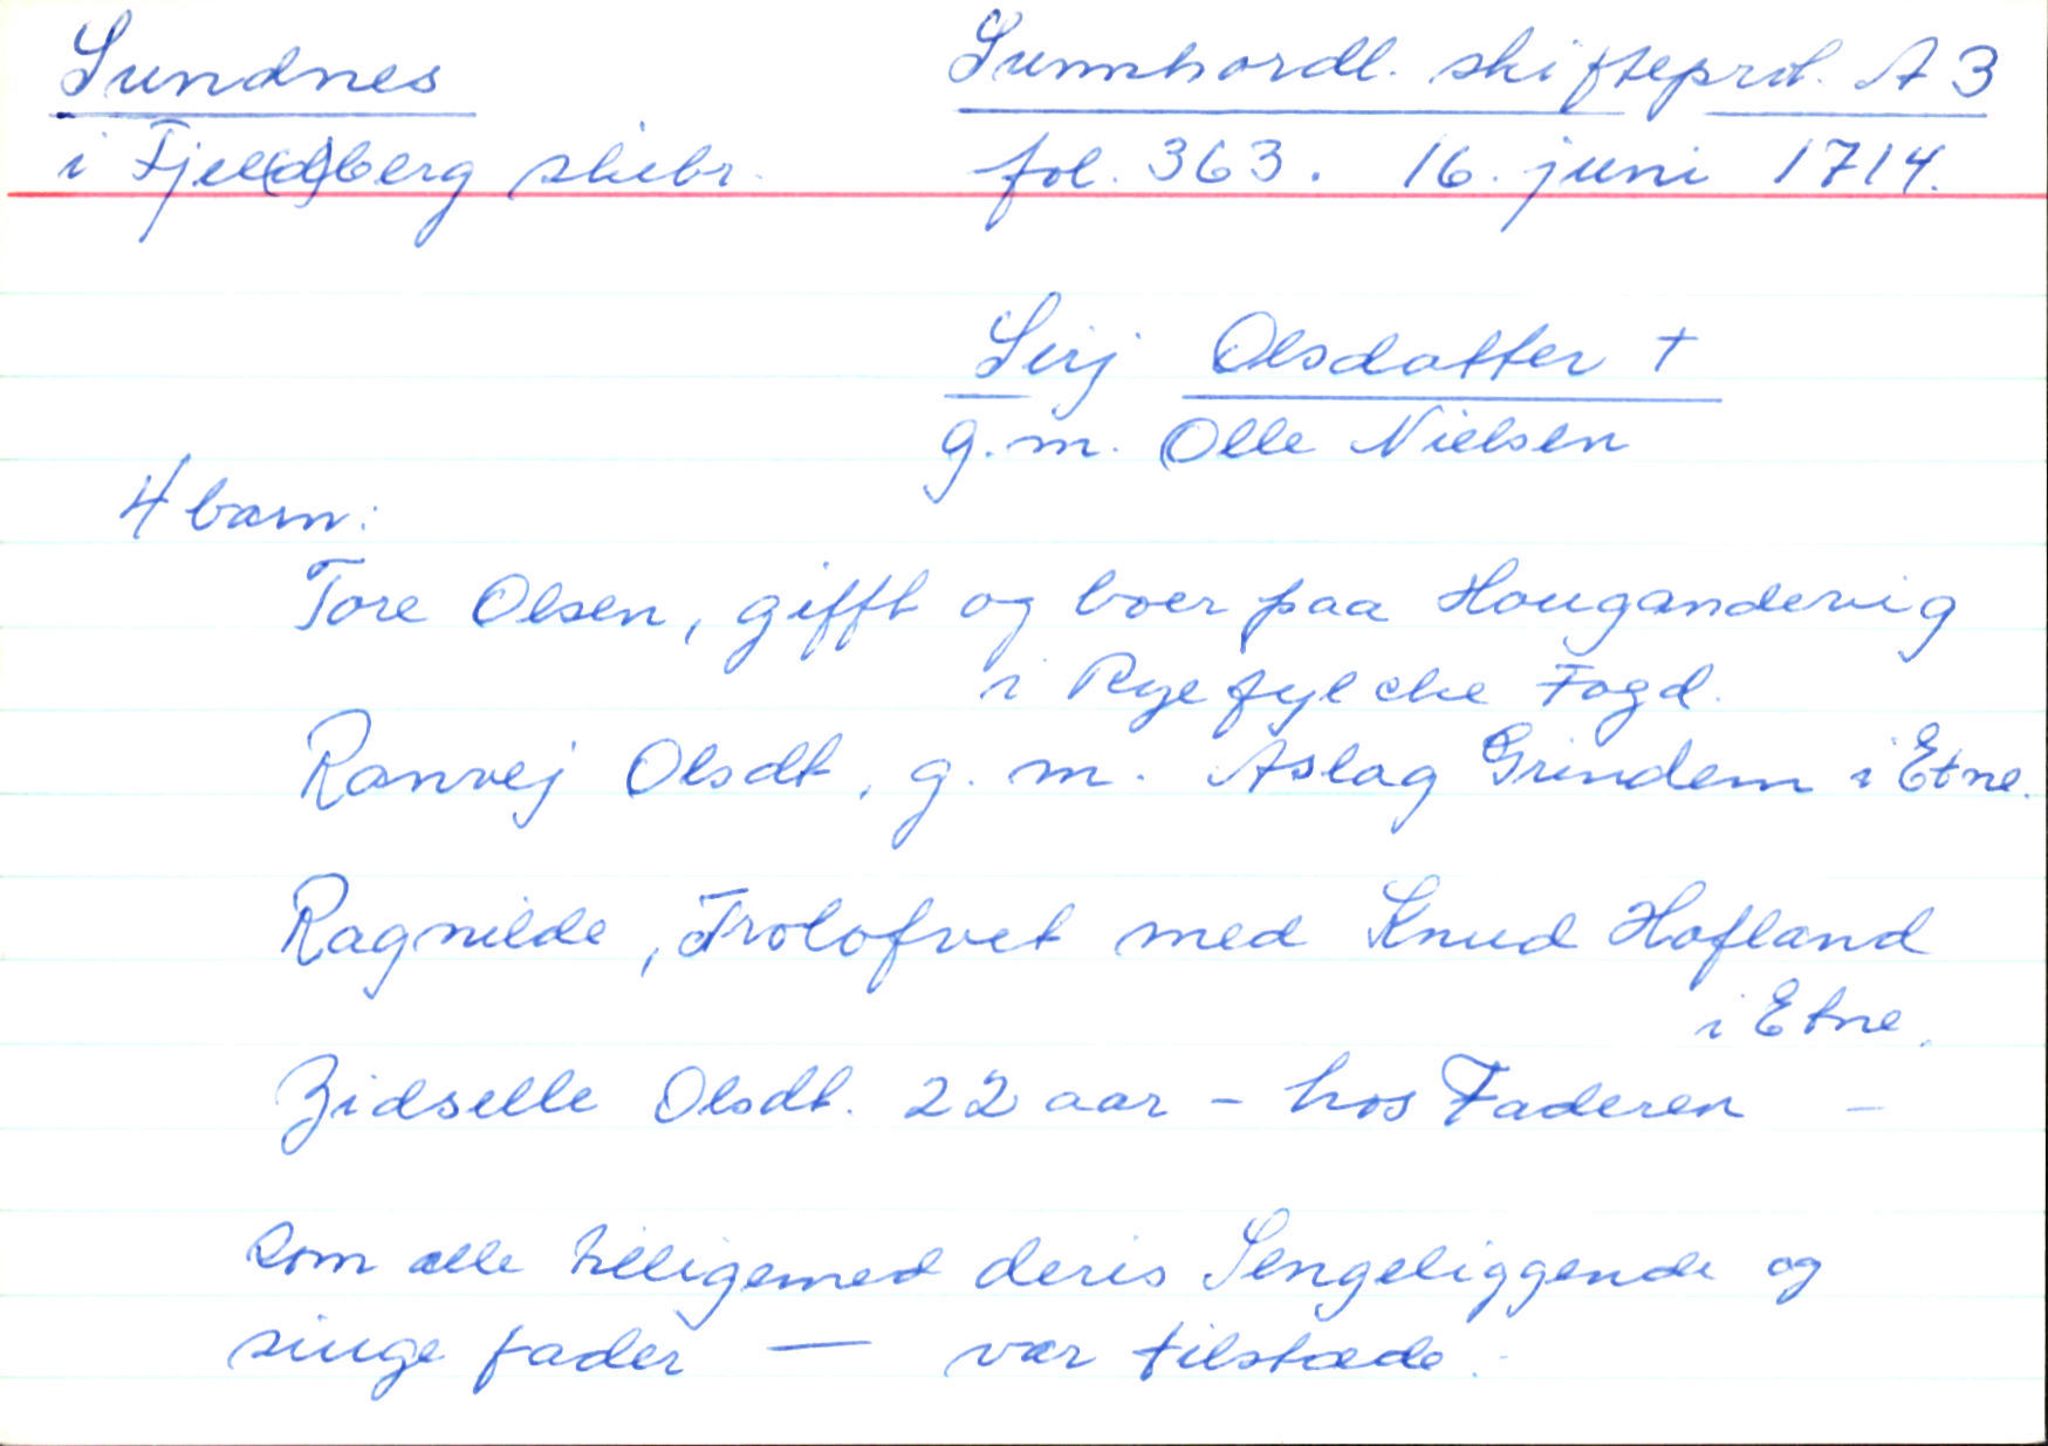 Sundnes
Sunnhordl. skifteprot. A 3
i Fjel(d)berg skibr.
fol. 363. 16. juni 1714.
Sirj Olsdatter +
g.m. Olle Nielsen
4 barn:
Tore Olsen, gifft og boer paa Hougandevig
i Ryefylcke Fogd.
Ranvej Olsdt, g.m. Aslag Grindem i Etne.
Ragnilde, Trolofvet med Knud Hofland
i Etne.
Zidselle Olsdt. 22 aar - hos Faderen -
som alle tilligemed deris Sengeliggende og
siuge fader — var tilstæde.